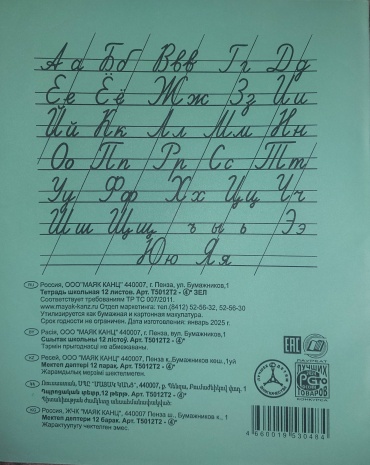 Аа Бб Ввв Гг Дд
Ее Ёё Жж Зз Ии
Йй Кк Лл Мм Нн
Оо Пп Рр Сс Тт
Уу Фф Хх Цц Чч
Шш Щщ ъ ы ь Ээ
Юю Яя
RU Россия, ООО "МАЯК КАНЦ" 440007, г. Пенза, ул. Бумажников,1
Тетрадь школьная 12 листов. Арт. Т5012Т2 - ЗЕЛ
Соответствует требованиям ТР ТС 007/2011.
www.mayak-kanz.ru Отдел маркетинга: тел.(8412) 52-56-32, 52-56-30
Утилизируется как бумажная и картонная макулатура.
Срок годности не ограничен. Дата изготовления: январь 2025 г.
BY Расія, ООО "МАЯК КАНЦ" 440007, г. Пенза, вул. Бумажников,1
Сшытак школьны 12 лістоў. Арт. Т5012Т2 -
Тэрмін прыгоднасці не абмежаваны.
KZ Ресей, ООО "МАЯК КАНЦ" 440007, Пенза қ.,Бумажников кош.,1үй
Мектеп дәптері 12 парақ. Арт. Т5012Т2 -
Жарамдылық мерзімі шектелмеген.
Арт. Т5012Т2 -
KG Россия, ЖЧК "МАЯК КАНЦ" 440007, Пенза ш., Бумажников к., 1
Мектеп дептери 12 барак. Арт. Т5012Т2 -
Жарактуулугу чектелген эмес.
EAC
ЛУЧШИХ
ТОВАРОВ
4 660019 530464